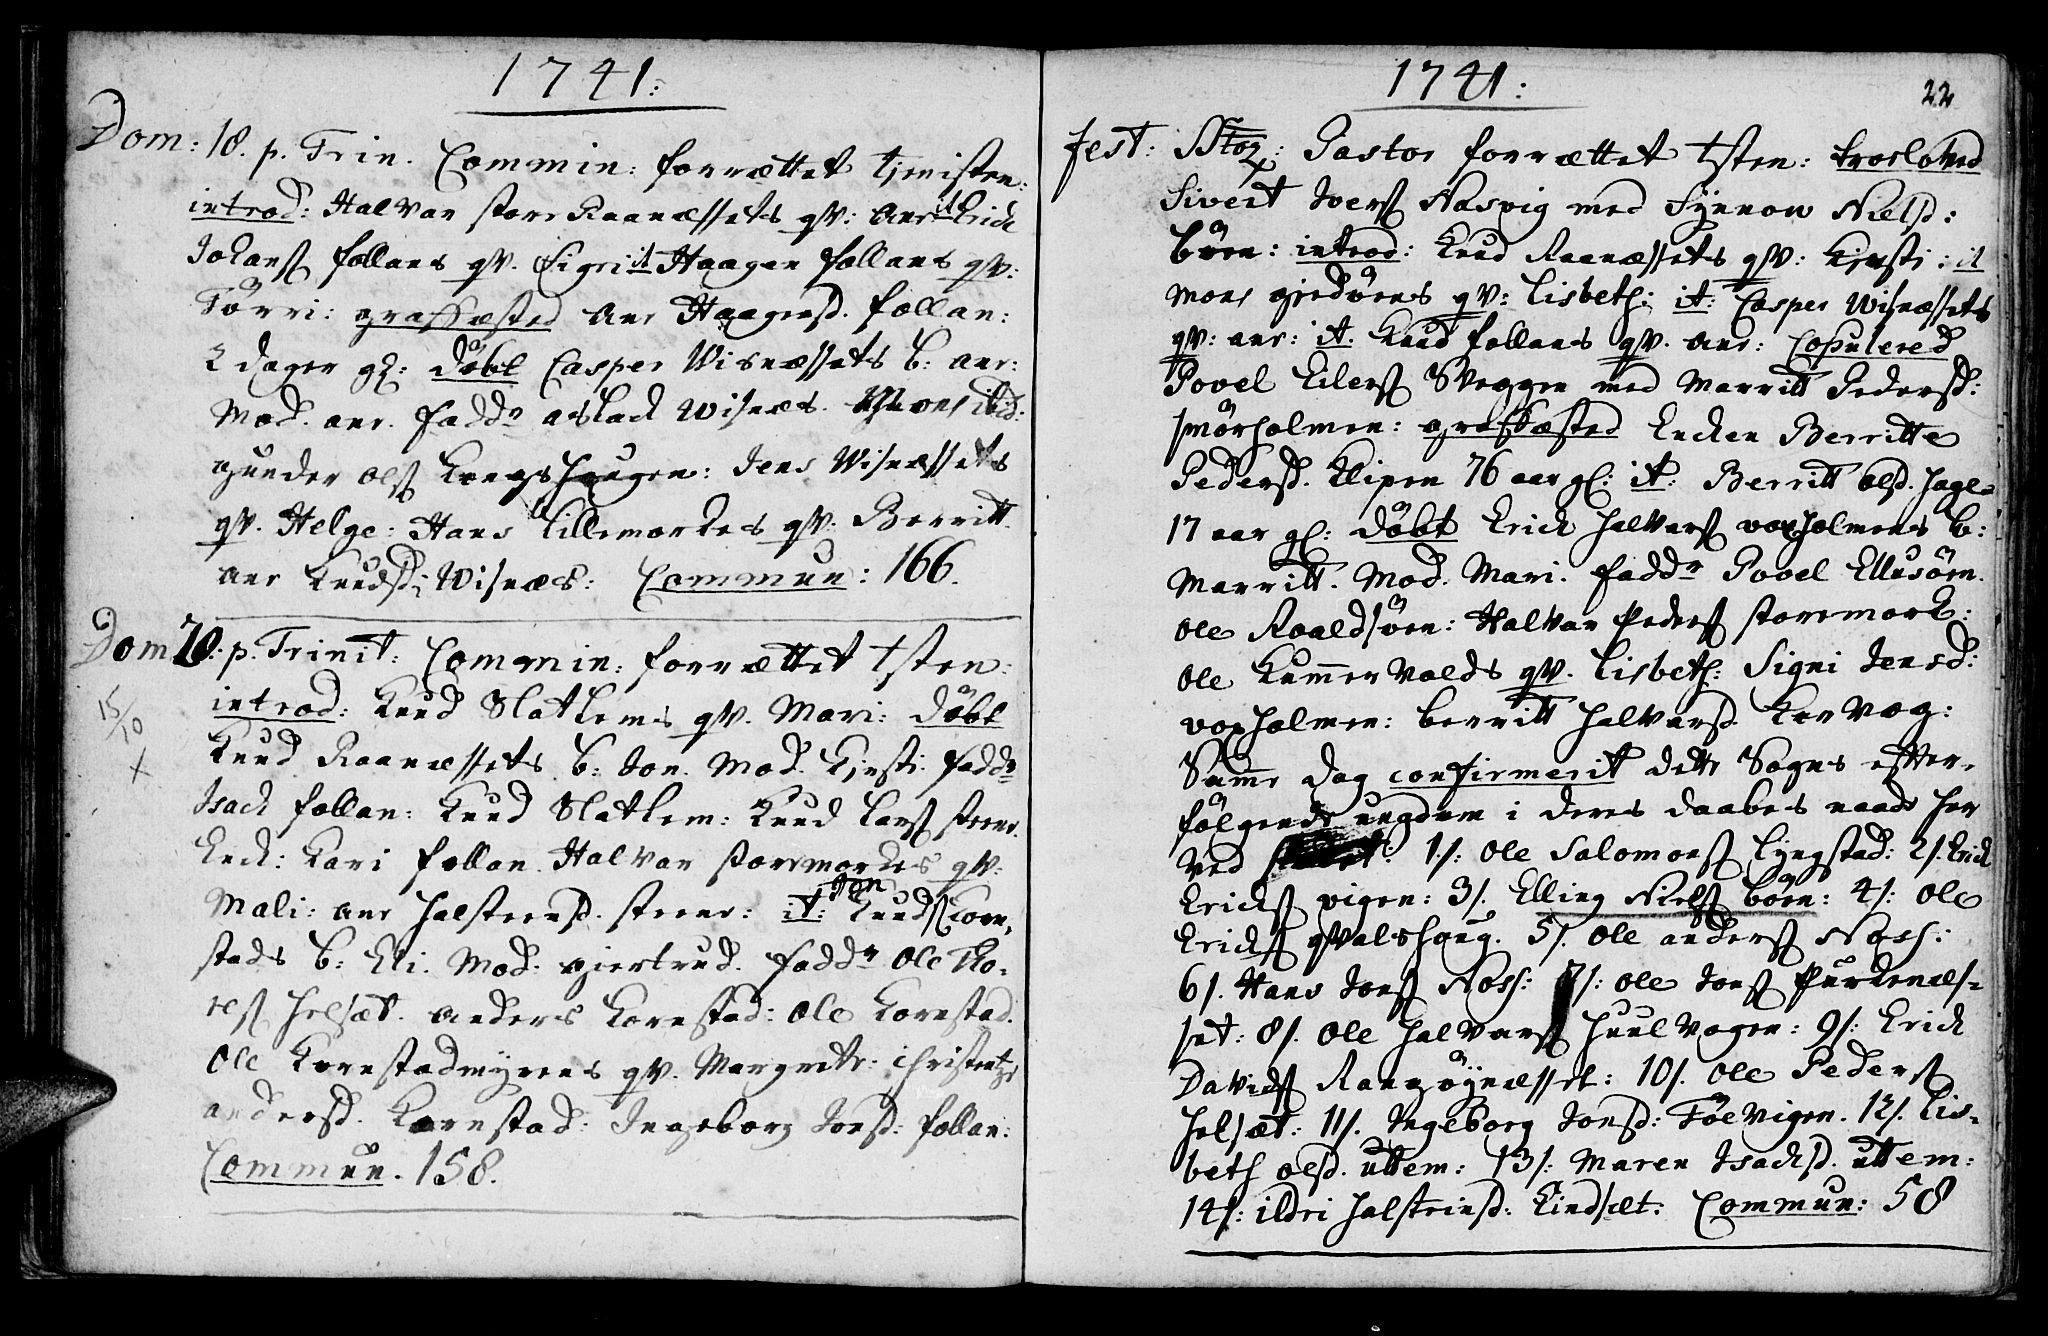 1741:
Dom: 18. p. Trin. Commin: forrættet tjenisten:
introd: Halvar store Raanæssets qv: Anne it Erich
Johans follans qv. Sigri it Haagen follans qv:
Torri: graffæsted Ane Haagensd. follan:
2 dager gl: döbt Casper Wisnæssets b: ane:
Mod. ane. fadd aslack Wisnæs. ibid:
gunder ols Kongshougen: Jens Wisnæssets
qv. Helge: Hans Lillemordes qv. Berritt
ane Knudsd: Wisnæs: Commun: 166.
Dom: p. Trinit: Commin: forrættet tsten:
15/10
introd: Knud Slatlems qv. Mari: döbt
Knud Raanæssets b: Jon. Mod. Kirsti. fadd
Isack follan: Knud Slatlem: Knud Lars steene.
Kari follan Halvar storemordes qv:
Mali: ane halsteensd. steene: it: Jon Knuds Korn-
stads b: Eli. Mod. giertrud. fadd Ole Tho-
res helsæt. anders Kornstad: Ole Kornstad.
Ole Kornstadmyrens qv. Margrete: christentze
andersd. Kornstad: Ingeborg Jonsd: follan:
Commun. 158.
1741:
22
fest: Pastor forrættet tsten: troelowed
Sivert Ivers Nasvig med Synnow Nielsd:
börn: introd: Knud Raanæssets qv: Kirsti: it
Mons giedöens qv: Lisbeth: it: Casper Wisnæssets
qv: ane: it. Knud follans qv. ane: Copulered
Povel Eilers Sveggen med Marritt Pedersd:
smörholmen: graffæsted Encken Berritte
Pedersd. Klipen 76 aar gl: it: Berritt olsd. hage-
17 aar gl: döbt Erich halvars voxholmens b:
Marritt. Mod. Mari. fadd Povel Ellusöen.
Ole Roaldsöen: Halvar Peders storemork:
Ole Kummervolds qv. Lisbeth: Signi Jensd:
voxholmen: berritt halvarsd Korvog:
Samme Dag confirmerit dette Sogns efter-
fölgende ungdom i deres daabes naade her
ved 1/: Ole Salomons Lyngstad: 2/. Erick
Ericks vigen: 3/. Elling Niels börn: 4/: Ole
Ericks qvalshoug. 5/. Ole anders Noss:
6/. Hans Jons Noss: 7/: Ole Jons Purkenæs-
set: 8/. Ole halvars huulvagen: 9/: Erick
Davids Ranzöynæsset: 10/. Ole Peders
helsæt: 11/. Ingeborg Jonsd: Töevigen. 12/. Lis-
beth olsd. uttem: 13/: Maren Isacksd. uttem:
14/: ildri halsteinsd: Lindsæt: Commun: 58